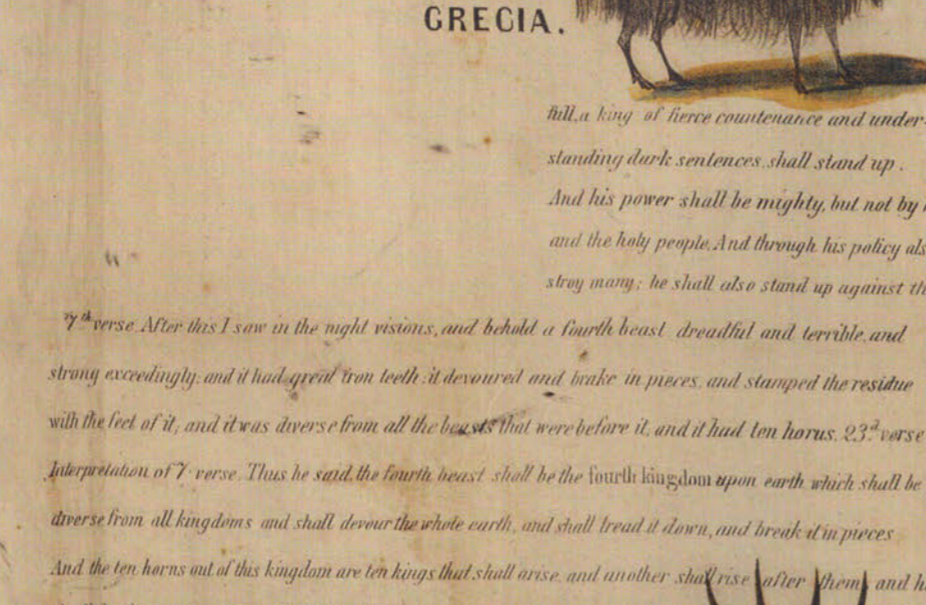 GRECIA.
full, a king of fierce countenance and under-
standing dark sentences, shall stand up.
And his power shall be mighty, but not by
and the holy people, And through his policy als
stroy many; he shall also stand up against th
7th verse. After this I saw in the night visions, and behold a fourth beast dreadful and terrible, and
strong exceedingly; and it had great iron teeth: it devoured and brake in pieces, and stamped the residue
with the feet of it; and it was diverse from all the beasts that were before it, and it had ten horus. 23d verse
Interpretation of 7 verse. Thus he said, the fourth beast shall be the fourth kingdom upon earth which shall be
diverse from all kingdoms and shall devour the whole earth, and shall tread it down, and break it in pieces
And the ten horns out of this kingdom are ten kings that shall arise, and another shall rise after them, and h